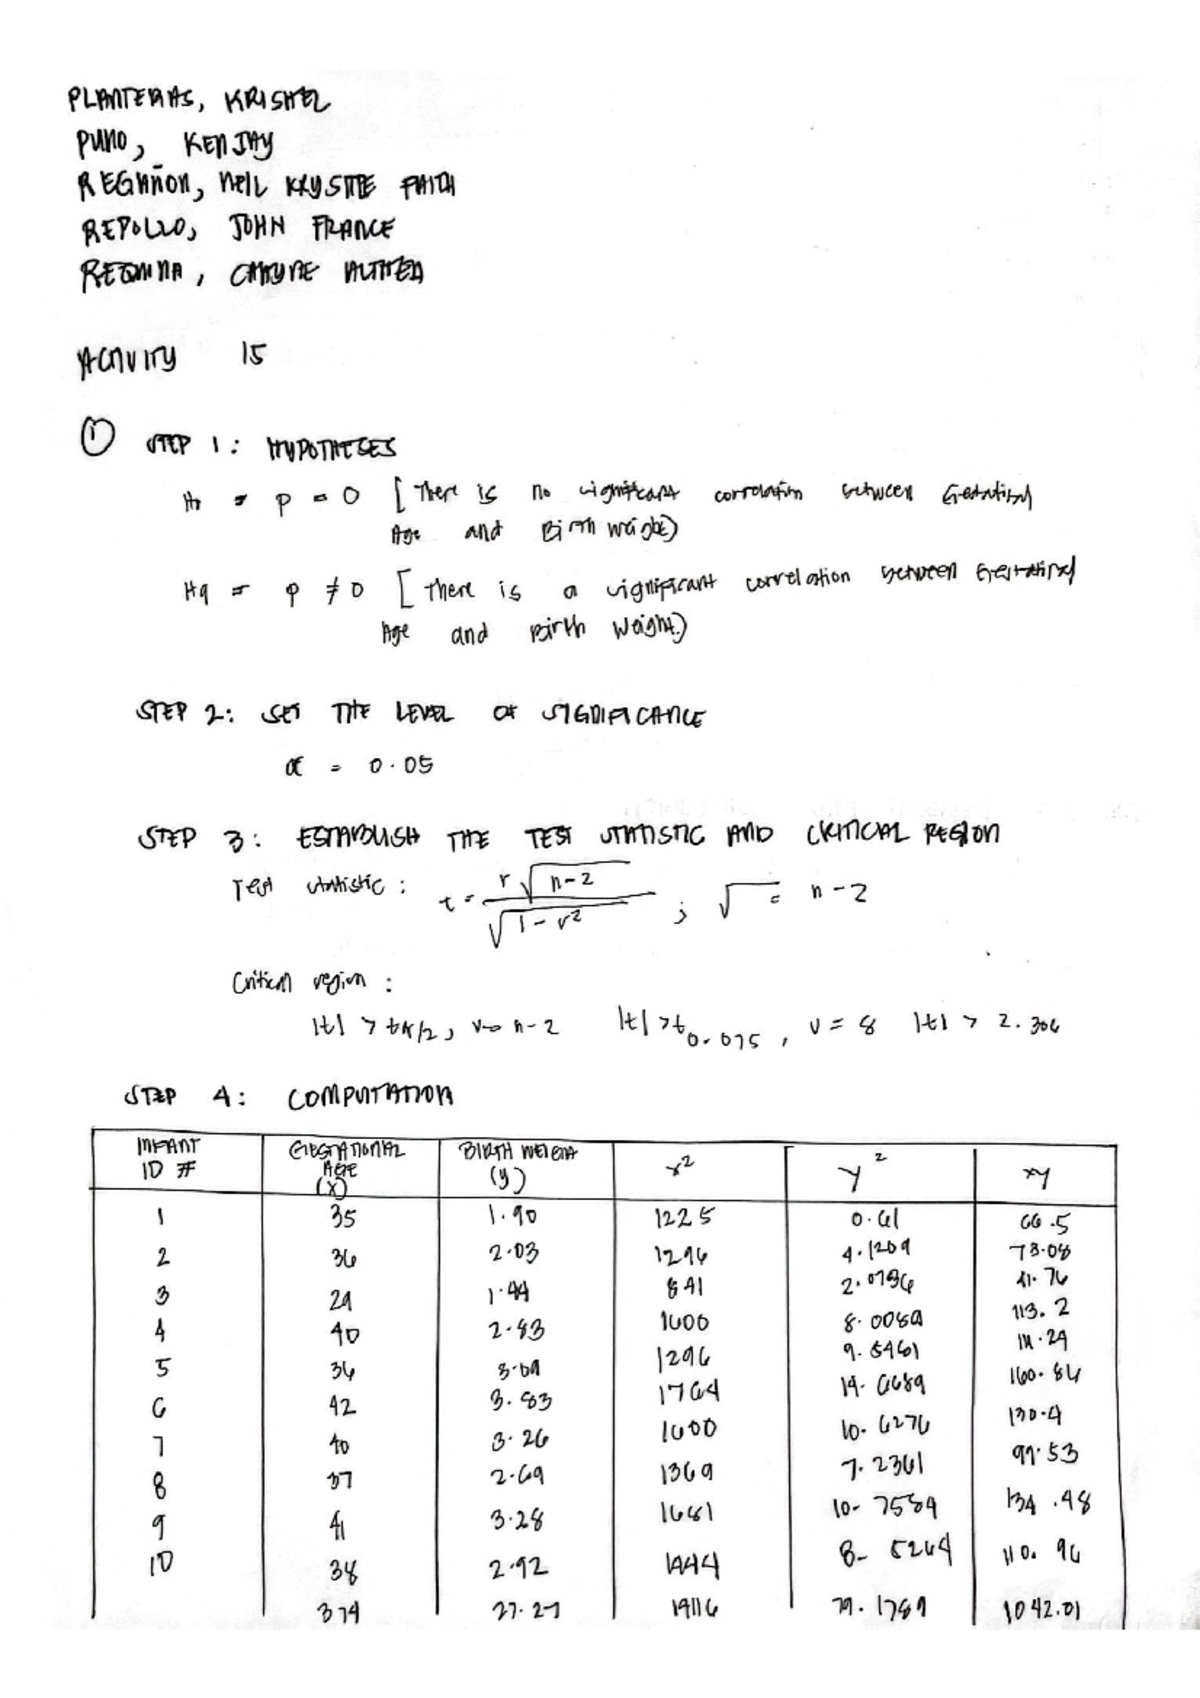 PLANTERAS, KRISHEL
PUNO, KENJAY
REGAÑON, NEIL KRYSTTE FAITH
REPOLLO, JOHN FRANCE
REQUINA, CHAYNE ALTHEA
ACTIVITY 15
① STEP 1: HYPOTHESES
Ho = p = 0 [There is no significant correlation between Gestational
Age and Birth weight)
Ha = p ≠ 0 [There is a significant correlation between Gestational
Age and Birth Weight.)
STEP 2: SET THE LEVEL OF SIGNIFICANCE
α = 0.05
STEP 3: ESTABLISH THE TEST STATISTIC AND CRITICAL REGION
Test statistic: t = r√n-2 / √1-r² ; √ = n-2
Critical region:
|t| > tα/2, v= n-2 |t| >t0.025, v = 8 |t| > 2.306
STEP 4: COMPUTATION
INFANT ID # GESTATIONAL AGE (X) BIRTH WEIGHT (y) x² y² xy
1 35 1.90 1225 0.61 66.5
2 36 2.03 1296 4.1209 73.08
3 29 1.44 841 2.0736 41.76
4 40 2.83 1600 8.0089 113.2
5 36 3.09 1296 9.5481 111.24
6 42 3.83 1764 14.6689 160.86
7 40 3.26 1600 10.6276 130.4
8 37 2.69 1369 7.2361 99.53
9 41 3.28 1681 10.7584 134.48
10 38 2.92 1444 8.5264 110.96
374 27.27 14116 79.1789 1042.01